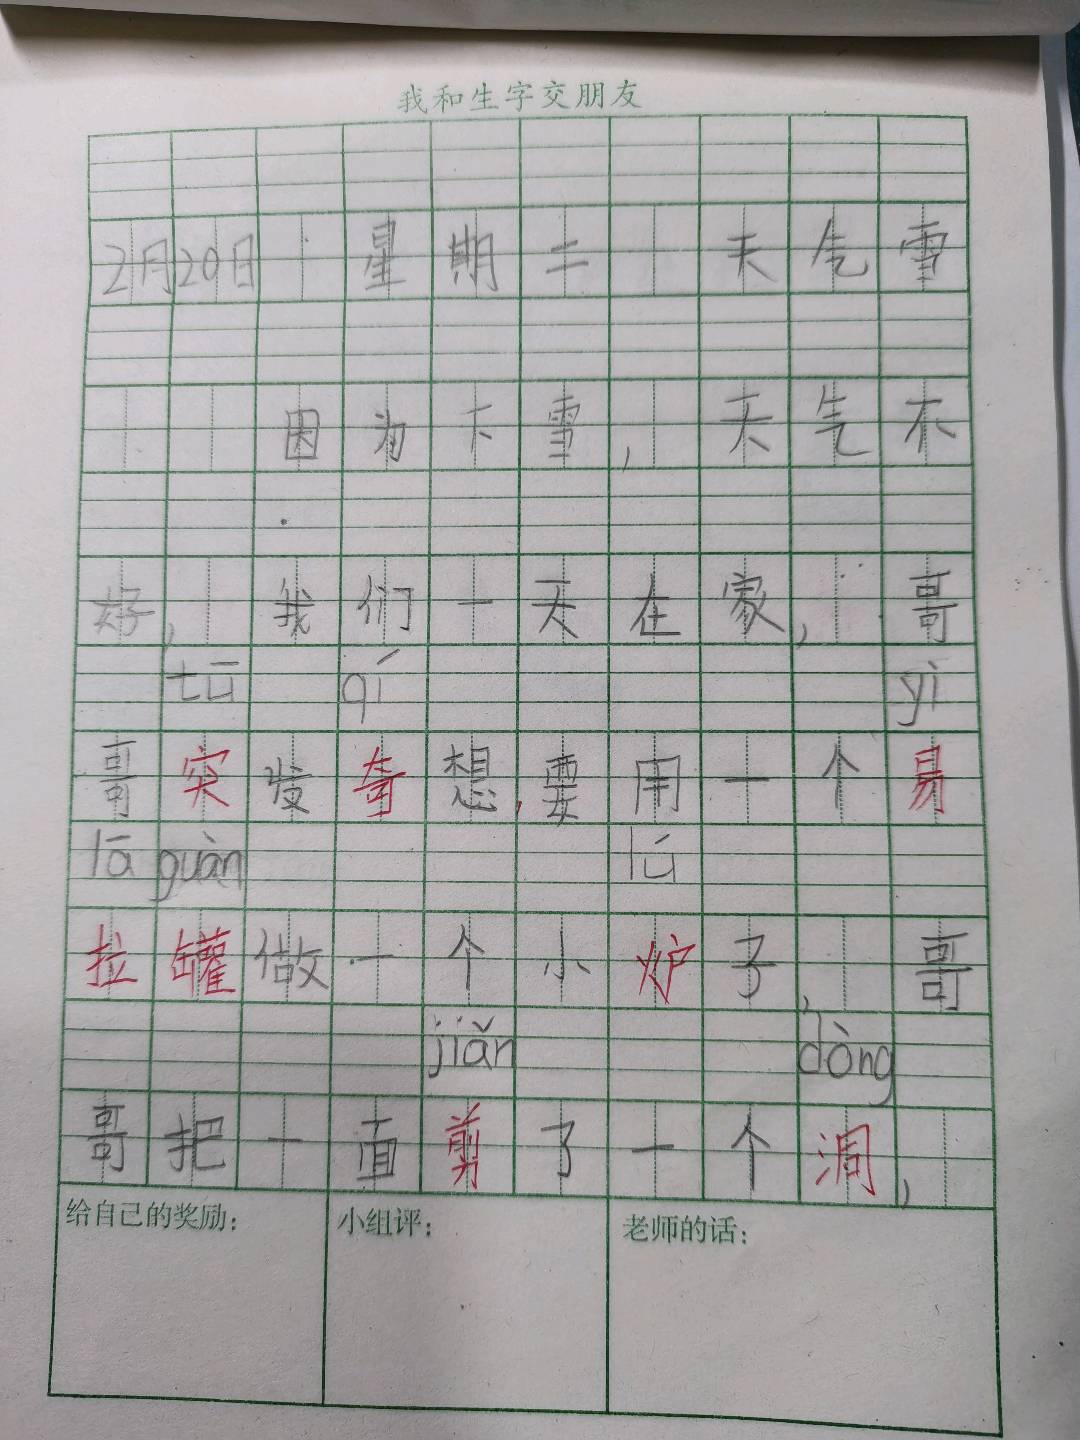 我和生字交朋友
2月20日 星期二 天气雪
因为下雪, 天气不
好, 我们一天在家, 哥
tū qí yì
哥突发奇想,要用一个易
lā guàn lú
拉罐做一个小炉子, 哥
jiǎn dòng
哥把一面剪了一个洞,
给自己的奖励: 小组评: 老师的话: